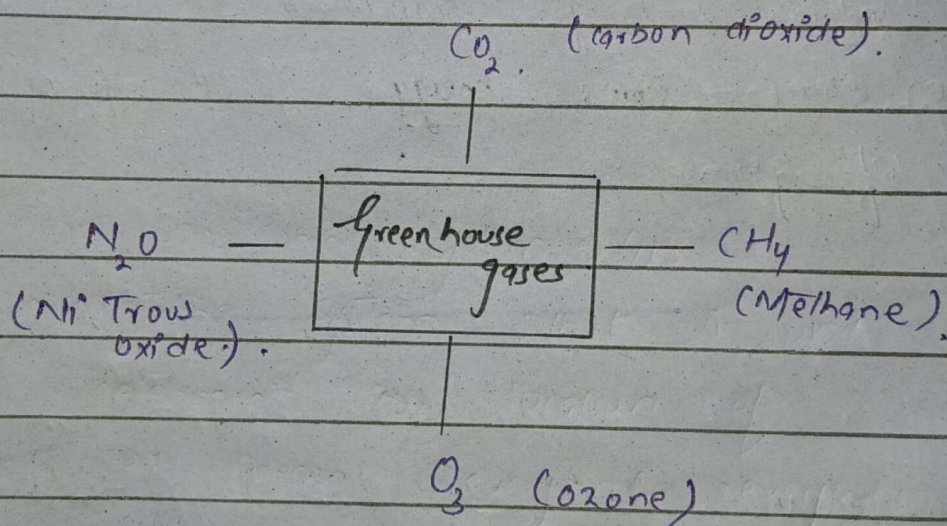 CO₂. (carbon dioxide).
Greenhouse
gases
N₂O
(Ni Trous
oxide.).
CH₄
(Methane).
O₃ (ozone)